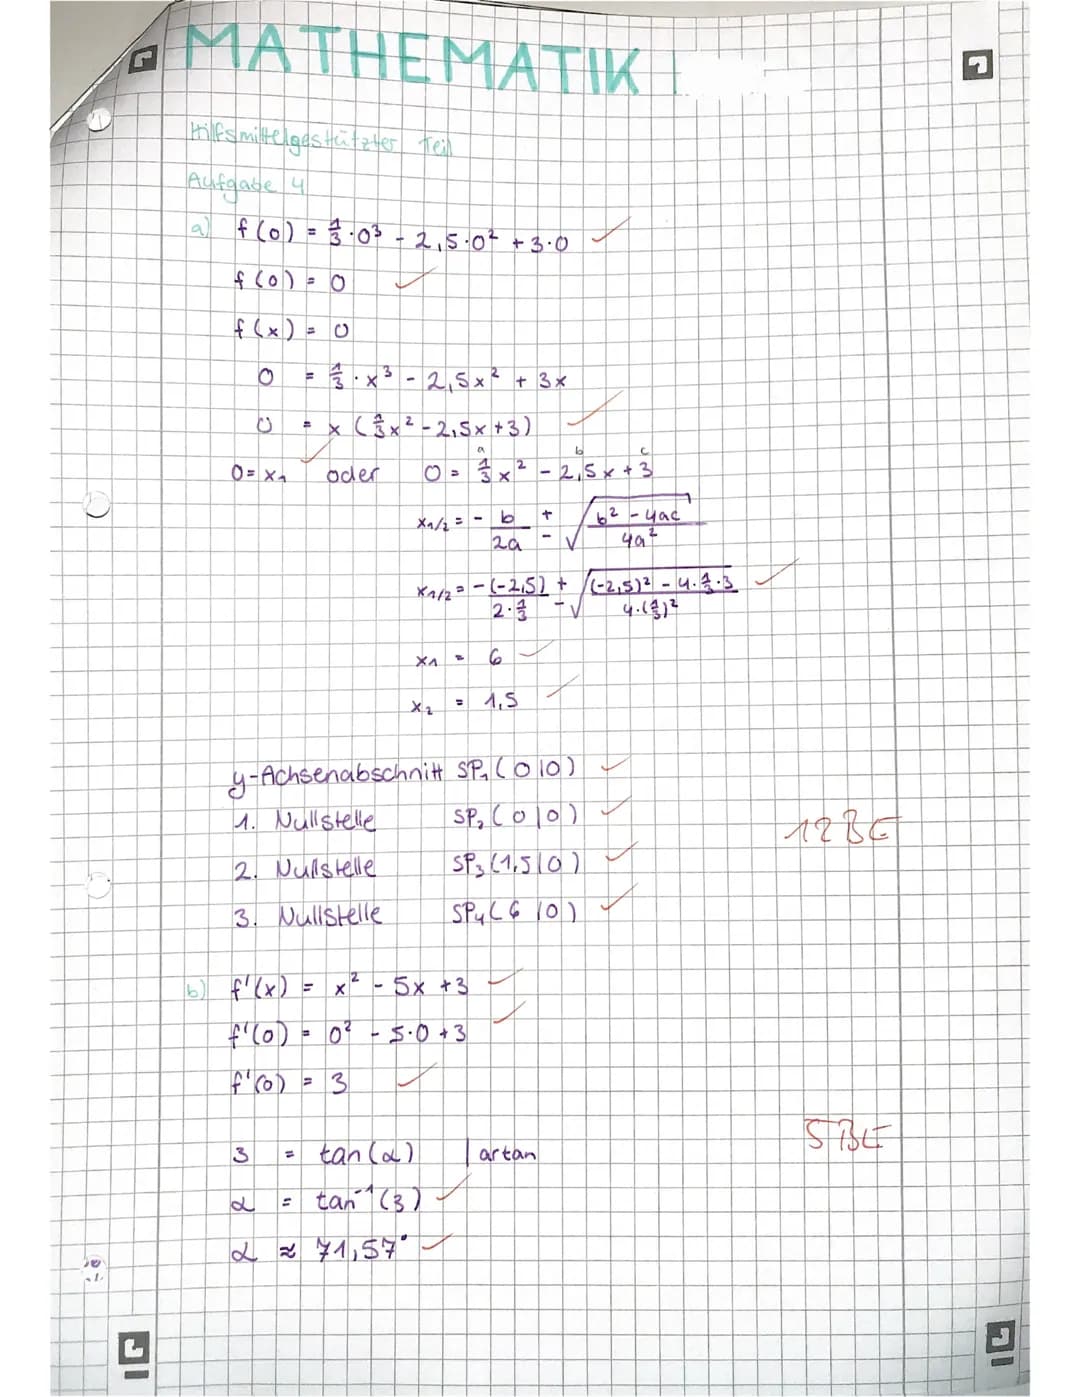 MATHEMATIK
Hilfsmittelgestützter Teil
Aufgabe 4
a) f(0) = 1/3 · 0³ - 2,5 · 0² + 3 · 0 ✓
f(0) = 0 ✓
f(x) = 0
0 = 1/3 · x³ - 2,5x² + 3x
0 = x (1/3x² - 2,5x + 3) ✓
a b c
0 = x₁ ✓ oder 0 = 1/3x² - 2,5x + 3
x₁/₂ = - b/2a ± √((b² - 4ac)/4a²)
x₁/₂ = -(-2,5)/(2·1/3) ± √(((-2,5)² - 4·1/3·3)/(4·(1/3)²)) ✓
x₁ = 6 ✓
x₂ = 1,5 ✓
y-Achsenabschnitt SP₁(0|0) ✓
1. Nullstelle SP₂(0|0) ✓ 12 BE
2. Nullstelle SP₃(1,5|0) ✓
3. Nullstelle SP₄(6|0) ✓
b) f'(x) = x² - 5x + 3 ✓
f'(0) = 0² - 5·0 + 3 ✓
f'(0) = 3 ✓
5 BE
3 = tan(α) | artan
α = tan⁻¹(3) ✓
α ≈ 71,57° ✓